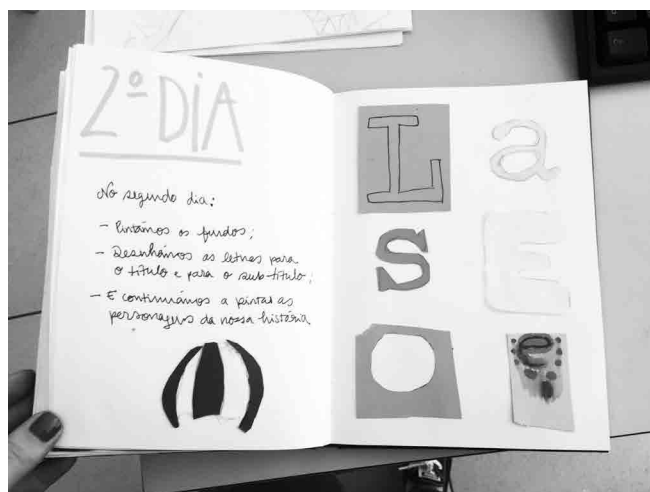 2º DIA
No segundo dia:
- Pintámos os fundos;
- Desenhámos as letras para
o título e para o sub-título;
- E continuámos a pintar as
personagens da nossa história
L a
S E
O e